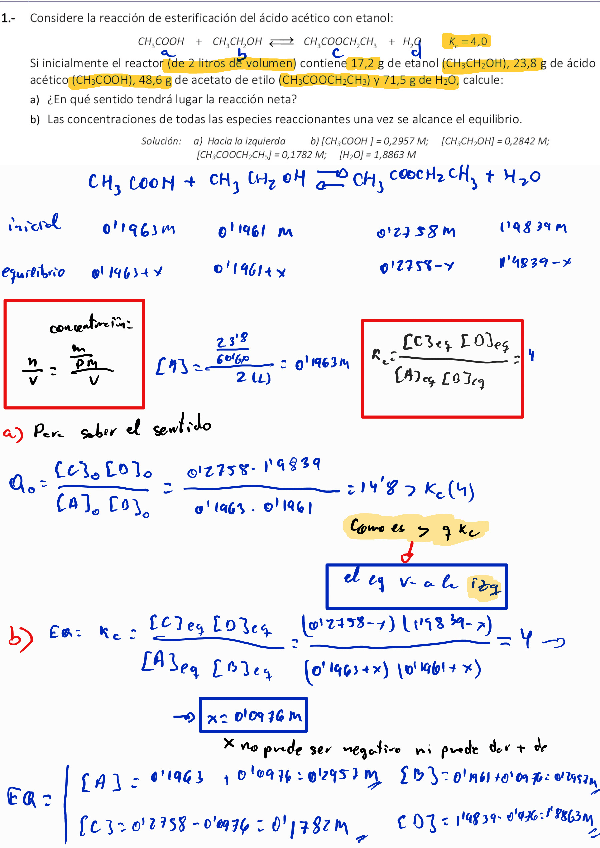 1.- Considere la reacción de esterificación del ácido acético con etanol:
CH₃COOH + CH₃CH₂OH ⇄ CH₃COOCH₂CH₃ + H₂O Kc = 4,0
a b c d
Si inicialmente el reactor (de 2 litros de volumen) contiene 17,2 g de etanol (CH₃CH₂OH), 23,8 g de ácido
acético (CH₃COOH), 48,6 g de acetato de etilo (CH₃COOCH₂CH₃) y 71,5 g de H₂O, calcule:
a) ¿En qué sentido tendrá lugar la reacción neta?
b) Las concentraciones de todas las especies reaccionantes una vez se alcance el equilibrio.
Solución: a) Hacia la izquierda b) [CH₃COOH ] = 0,2957 M; [CH₃CH₂OH] = 0,2842 M;
[CH₃COOCH₂CH₃] = 0,1782 M; [H₂O] = 1,8863 M
CH₃ COOH + CH₃ CH₂ OH ⇄ CH₃ COOCH₂ CH₃ + H₂O
inicial 0'1963 M 0'1961 M 0'2758 M 1'9839 M
equilibrio 0'1963+x 0'1961+x 0'2758-x 1'9839-x
concentración=
n/V = (m/PM)/V
[A] = (23'8/60'60)/2(L) = 0'1963 M
Kc = [C]eq [D]eq / [A]eq [B]eq = 4
a) Para saber el sentido
Q₀ = [C]₀ [D]₀ / [A]₀ [B]₀ = 0'2758 · 1'9839 / 0'1963 · 0'1961 = 14'8 > Kc (4)
Como es > q Kc
el eq va a la izq
b) EQ= Kc = [C]eq [D]eq / [A]eq [B]eq = (0'2758-x) (1'9839-x) / (0'1963+x) (0'1961+x) = 4 →
→ x = 0'0976 M
x no puede ser negativo ni puede dar + de
EQ = [A] = 0'1963 + 0'0976 = 0'2953 M [B] = 0'1961+0'0976 = 0'2957 M
[C] = 0'2758 - 0'0976 = 0'1782 M [D] = 1'9839 - 0'976 = 1'8863 M